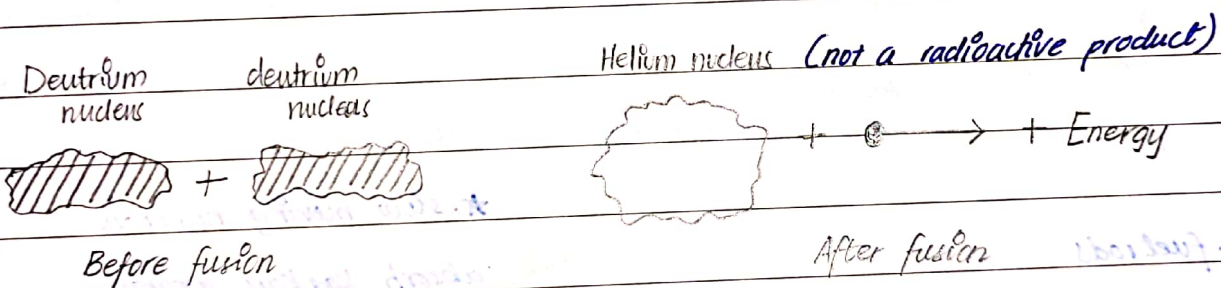 Deutrium
nucleus
deutrium
nucleus
Helium nucleus (not a radioactive product)
+
+
+ Energy
Before fusion
After fusion